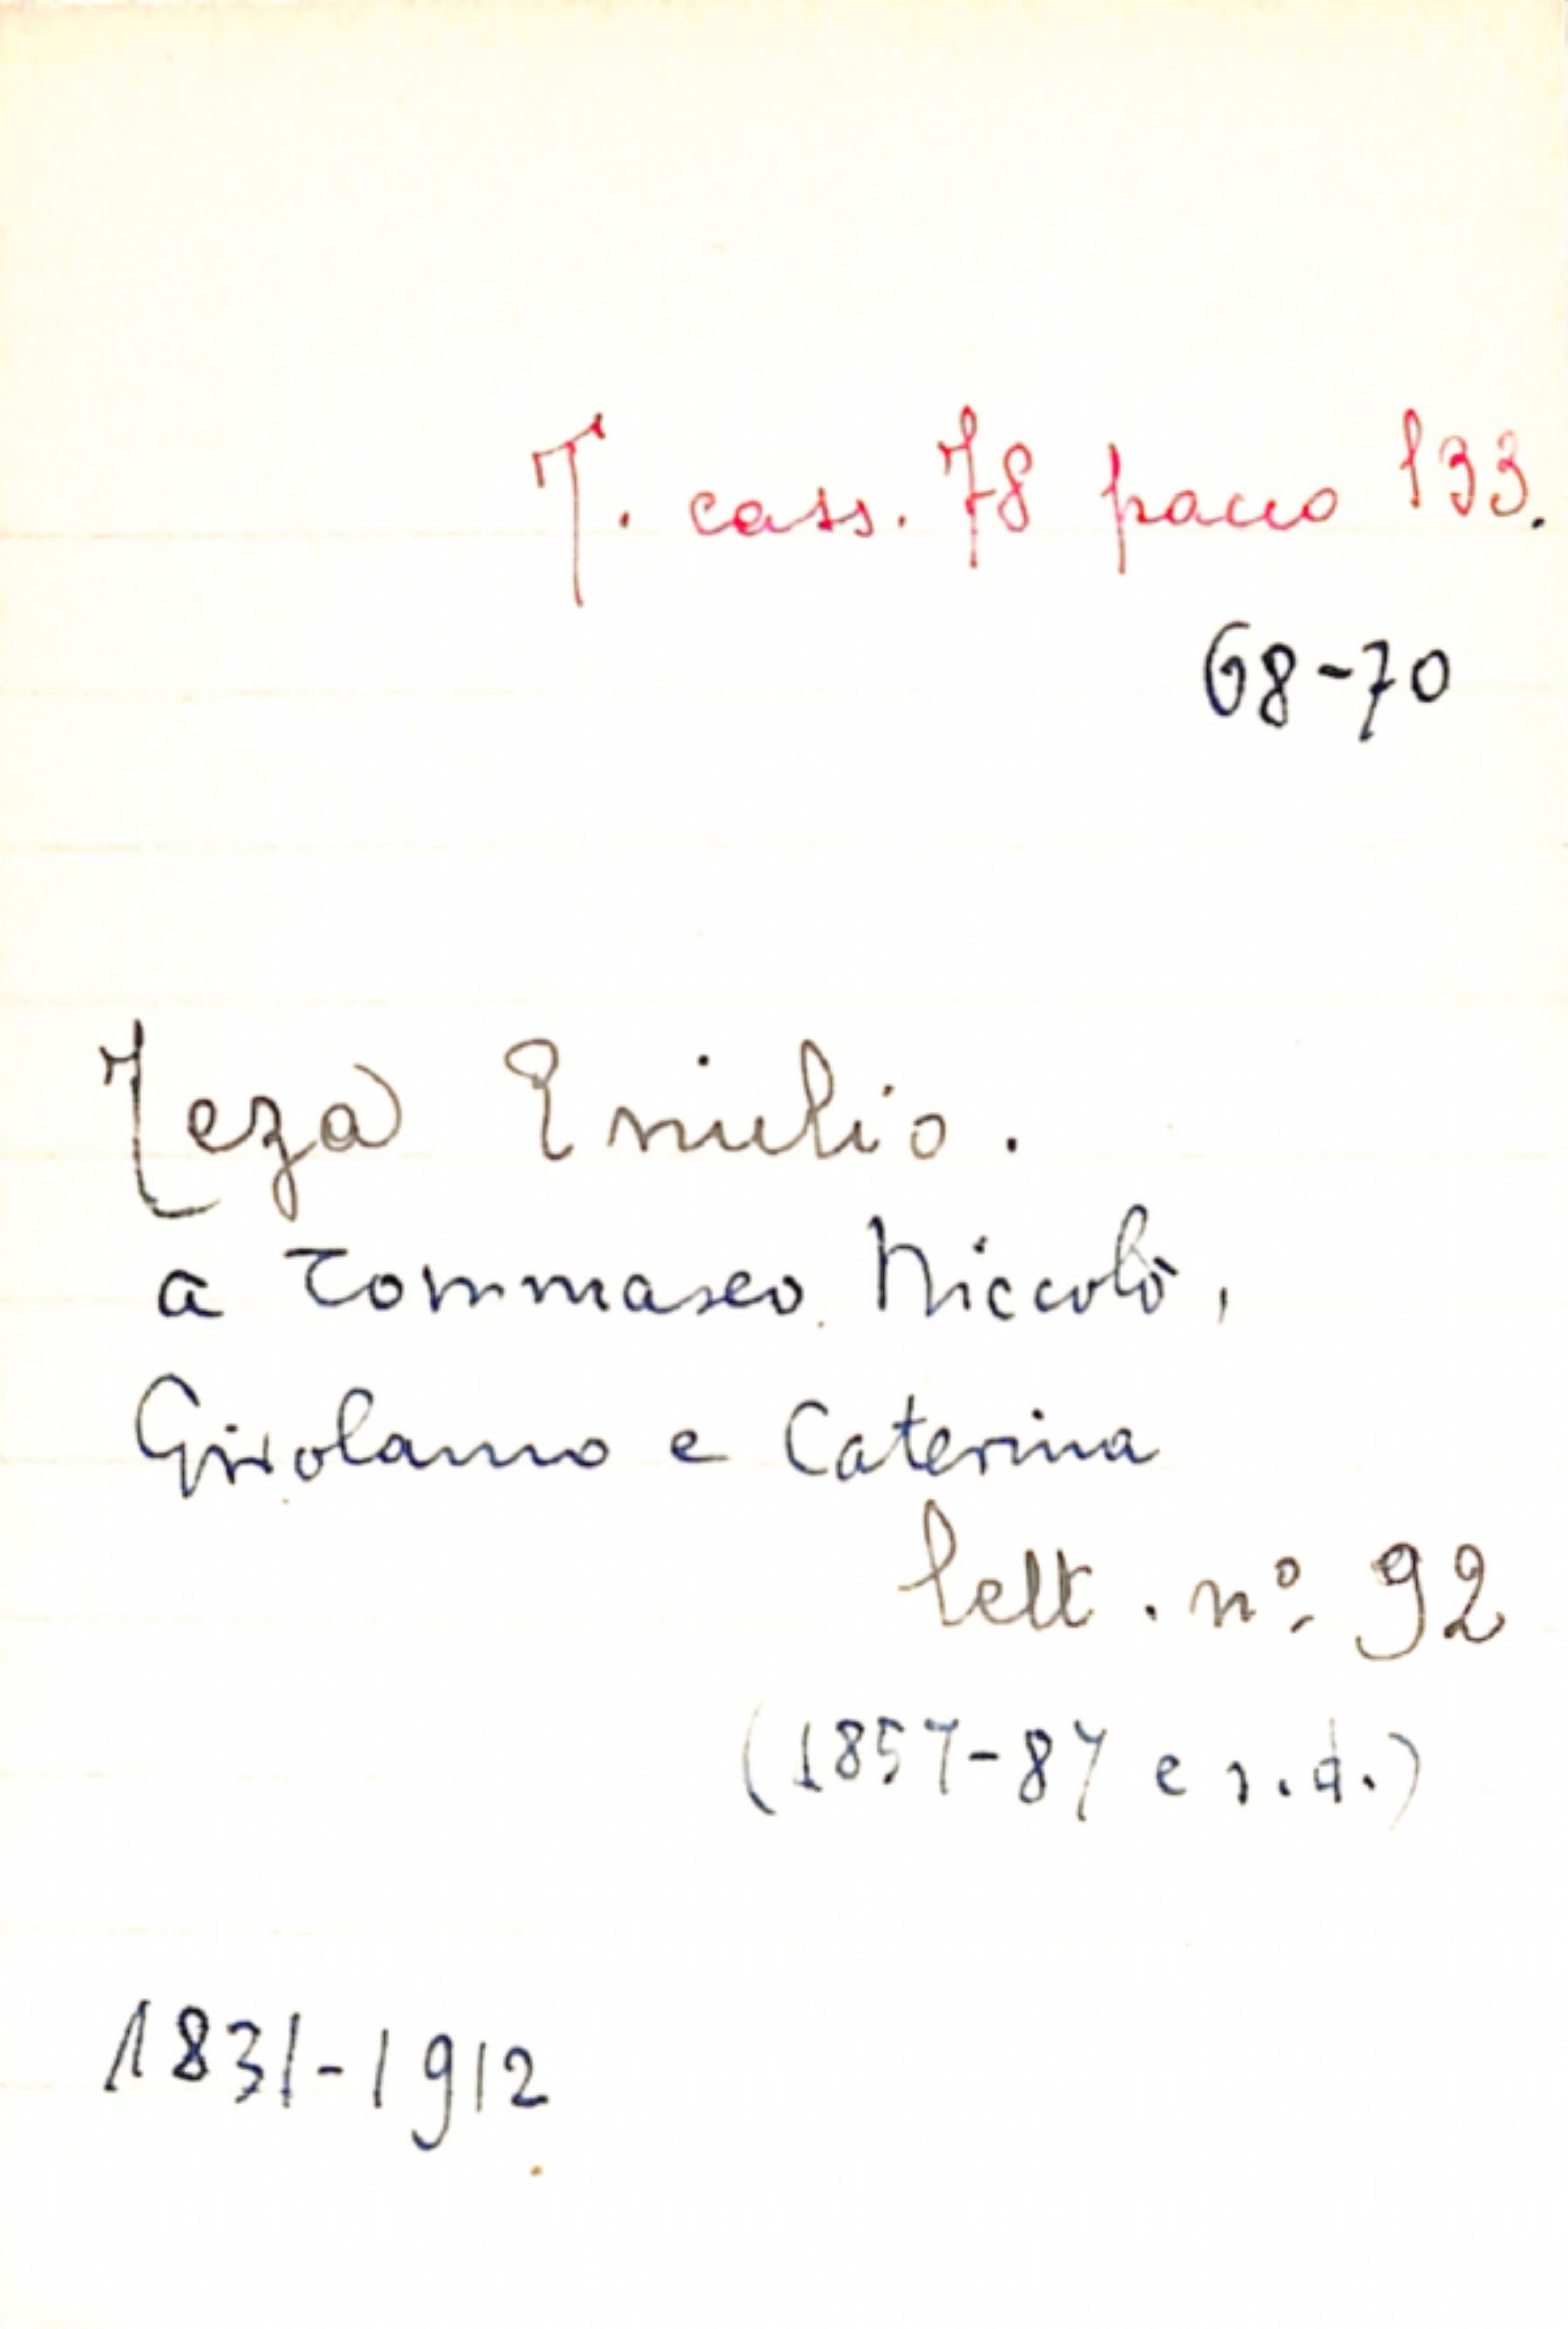 T. cass. 78 pacco 133.
68-70
Teza Emilio.
a Tommaseo Niccolò,
Girolamo e Caterina
lett. nº 92
(1857-87 e s.d.)
1831-1912